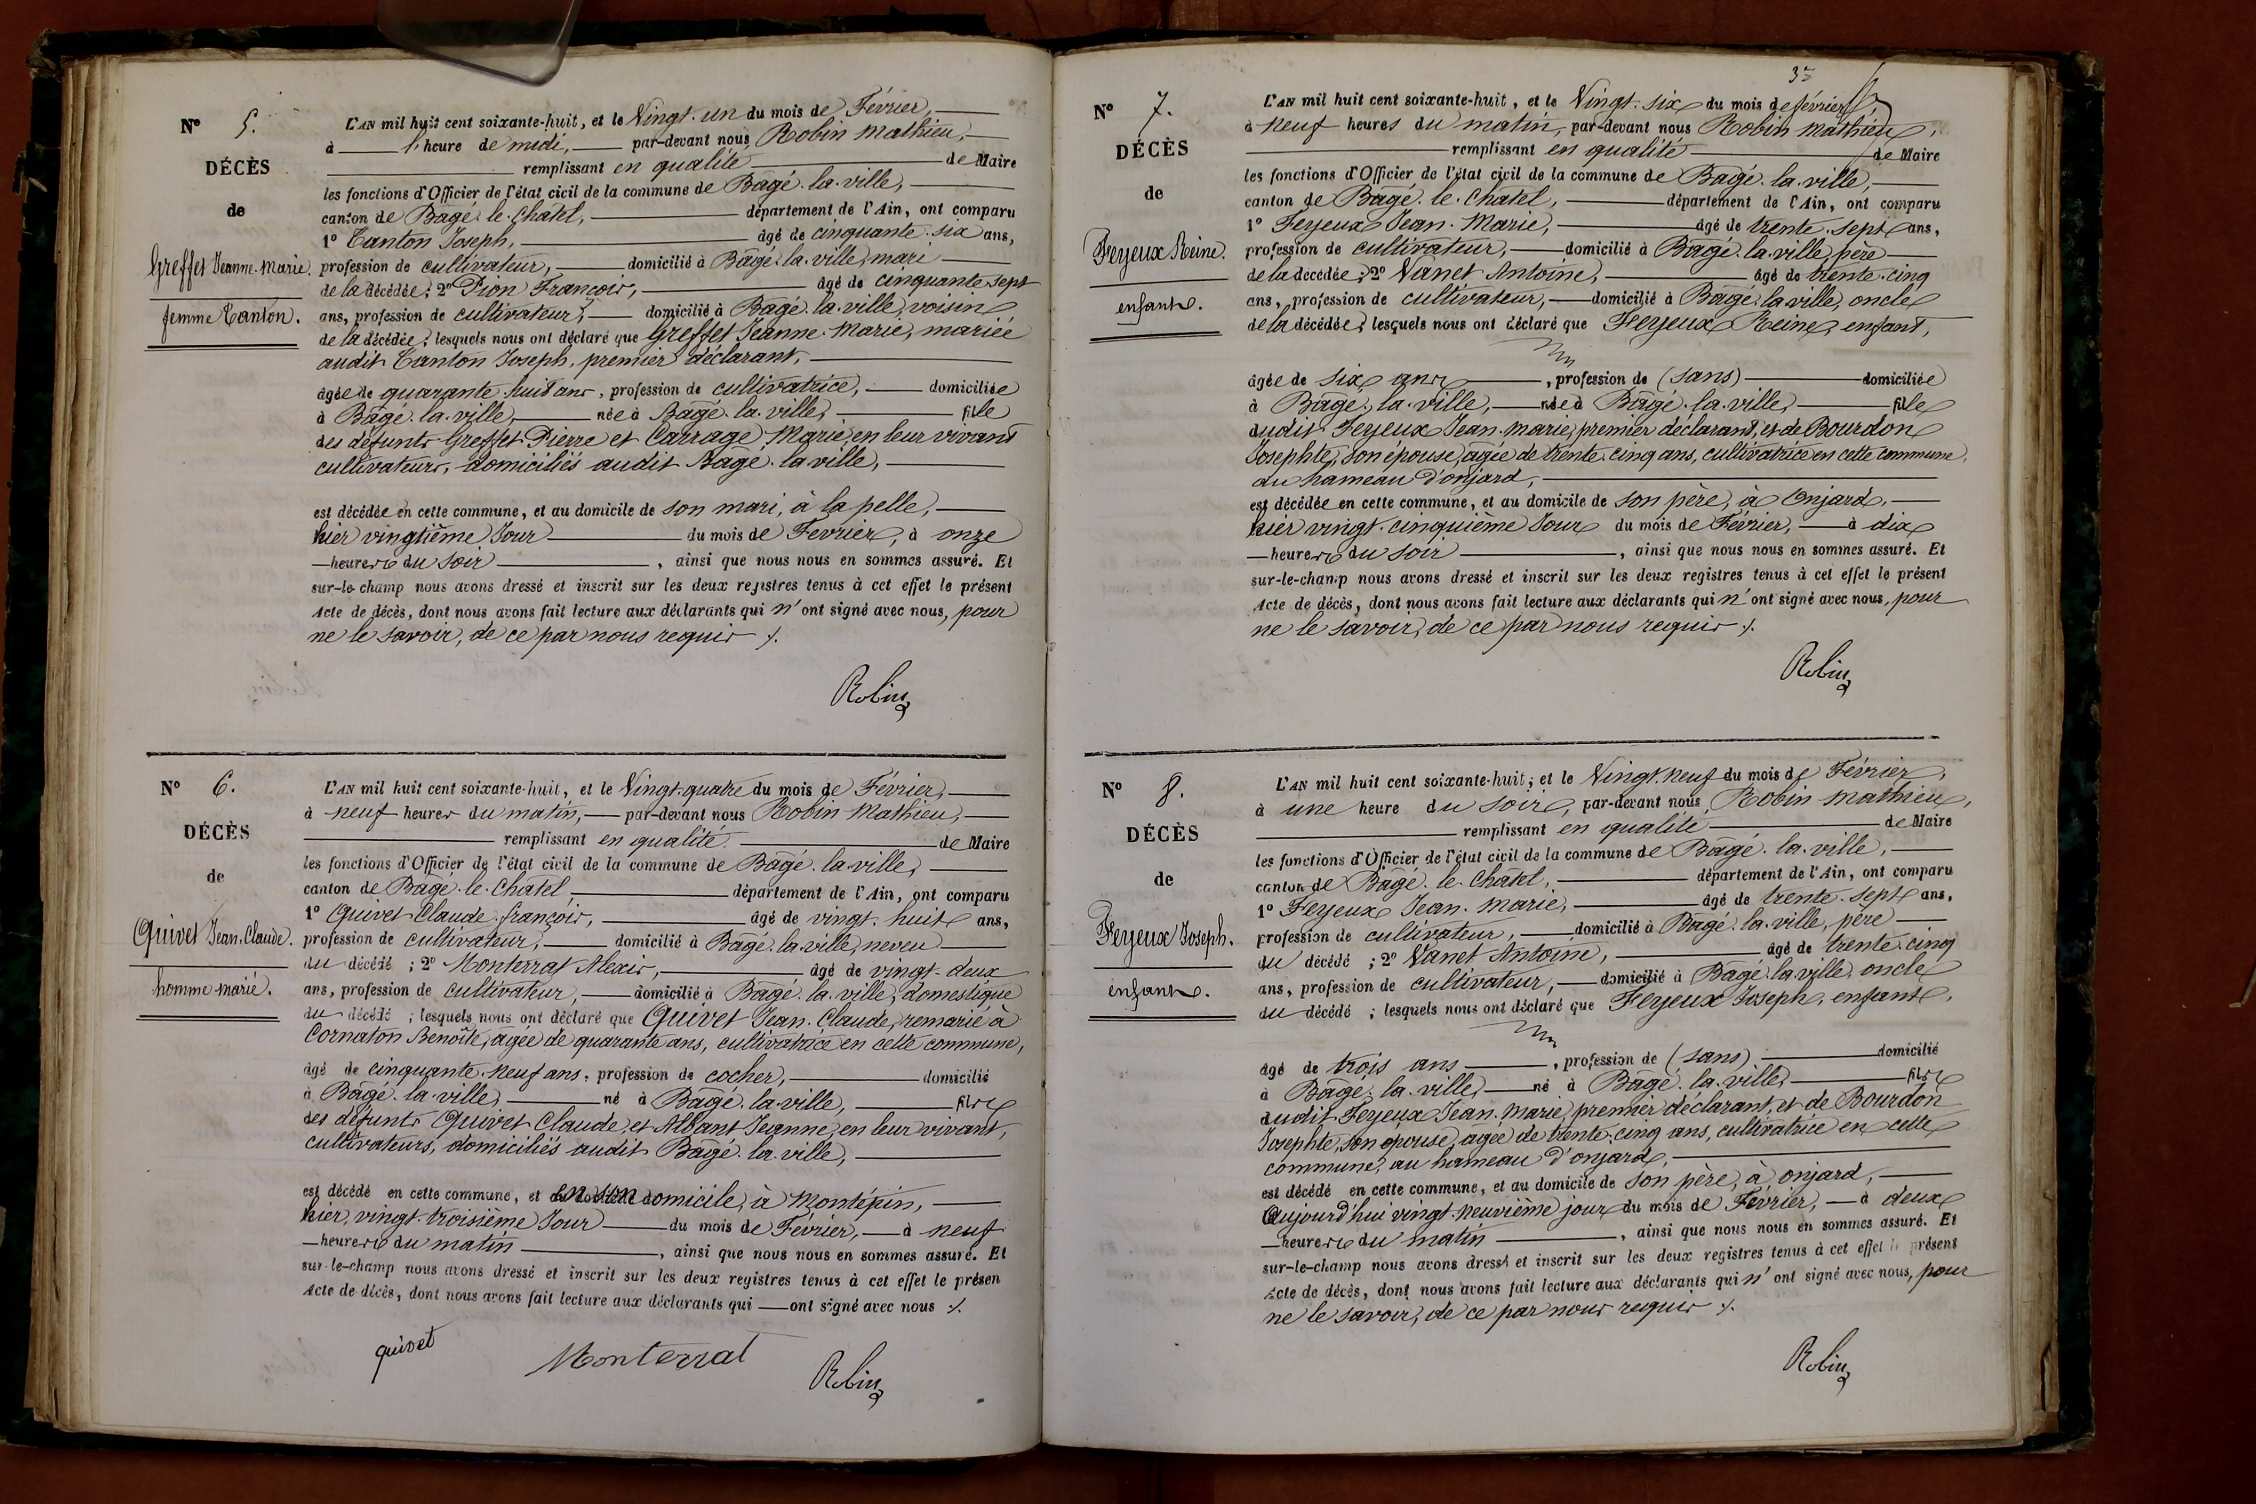 N° 5.
DÉCÈS
de
Greffet Jeanne-Marie
femme Canton.
L'AN mil huit cent soixante-huit, et le Vingt-un du mois de Février,
à l'heure de midi, par-devant nous Robin Mathieu,
remplissant en qualité de Maire
les fonctions d'Officier de l'état civil de la commune de Bagé-la-ville,
canton de Bagé-le-Châtel, département de l'Ain, ont comparu
1° Canton Joseph, âgé de cinquante-six ans,
profession de cultivateur, domicilié à Bagé-la-ville, mari
de la décédée; 2° Pion François, âgé de cinquante-sept
ans, profession de cultivateur, domicilié à Bagé-la-ville, voisin
de la décédée; lesquels nous ont déclaré que Greffet Jeanne-Marie, mariée
audit Canton Joseph, premier déclarant,
âgée de quarante-huit ans, profession de cultivatrice, domiciliée
à Bagé-la-ville, née à Bagé-la-ville, fille
des défunts Greffet Pierre et Carrage Marie, en leur vivant
cultivateurs, domiciliés audit Bagé-la-ville,
est décédée en cette commune, et au domicile de son mari, à la pelle,
hier vingtième Jour du mois de Février, à onze
heures du soir, ainsi que nous nous en sommes assuré. Et
sur-le-champ nous avons dressé et inscrit sur les deux registres tenus à cet effet le présent
Acte de décès, dont nous avons fait lecture aux déclarants qui n'ont signé avec nous, pour
ne le savoir, de ce par nous requis ./.
Robin
N° 6.
DÉCÈS
de
Quivet Jean-Claude.
homme marié.
L'AN mil huit cent soixante-huit, et le Vingt-quatre du mois de Février,
à neuf heures du matin, par-devant nous Robin Mathieu,
remplissant en qualité de Maire
les fonctions d'Officier de l'état civil de la commune de Bagé-la-ville,
canton de Bagé-le-Châtel, département de l'Ain, ont comparu
1° Quivet Claude-françois, âgé de vingt-huit ans,
profession de cultivateur, domicilié à Bagé-la-ville, neveu
du décédé; 2° Monterrat Alexis, âgé de vingt-deux
ans, profession de cultivateur, domicilié à Bagé-la-ville, domestique
du décédé; lesquels nous ont déclaré que Quivet Jean-Claude, remarié à
Cornaton Benoîte, âgée de quarante ans, cultivatrice en cette commune,
âgé de cinquante-neuf ans, profession de cocher, domicilié
à Bagé-la-ville, né à Bagé-la-ville, fils
des défunts Quivet Claude, et Albant Jeanne, en leur vivant,
cultivateurs, domiciliés audit Bagé-la-ville,
est décédé en cette commune, et en son domicile, à Montépin,
hier, vingt-troisième Jour du mois de Février, à neuf
heures du matin, ainsi que nous nous en sommes assuré. Et
sur-le-champ nous avons dressé et inscrit sur les deux registres tenus à cet effet le présen
Acte de décès, dont nous avons fait lecture aux déclarants qui ont signé avec nous ./.
quivet Monterrat Robin
33
N° 7.
DÉCÈS
de
Feyeux Reine.
enfant.
L'AN mil huit cent soixante-huit, et le Vingt-six du mois de février
à neuf heures du matin, par-devant nous Robin Mathieu,
remplissant en qualité de Maire
les fonctions d'Officier de l'état civil de la commune de Bagé-la-ville,
canton de Bagé-le-Châtel, département de l'Ain, ont comparu
1° Feyeux Jean-Marie, âgé de trente-sept ans,
profession de cultivateur, domicilié à Bagé-la-ville, père
de la décédée; 2° Vanet Antoine, âgé de trente-cinq
ans, profession de cultivateur, domicilié à Bagé-la-ville, oncle
de la décédée; lesquels nous ont déclaré que Feyeux Reine, enfant,
âgée de six ans, profession de (sans) domiciliée
à Bagé-la-ville, née à Bagé-la-ville, fille
dudit Feyeux Jean-Marie, premier déclarant, et de Bourdon
Josephte, son épouse, âgée de trente-cinq ans, cultivatrice en cette commune,
au hameau d'onjard,
est décédée en cette commune, et au domicile de son père, à Onjard,
hier vingt-cinquième Jour du mois de Février, à dix
heures du soir, ainsi que nous nous en sommes assuré. Et
sur-le-champ nous avons dressé et inscrit sur les deux registres tenus à cet effet le présent
Acte de décès, dont nous avons fait lecture aux déclarants qui n'ont signé avec nous, pour
ne le savoir, de ce par nous requis ./.
Robin
N° 8.
DÉCÈS
de
Feyeux Joseph.
enfant.
L'AN mil huit cent soixante-huit, et le Vingt-neuf du mois de Février,
à une heure du soir, par-devant nous Robin Mathieu,
remplissant en qualité de Maire
les fonctions d'Officier de l'état civil de la commune de Bagé-la-ville,
canton de Bagé-le-Châtel, département de l'Ain, ont comparu
1° Feyeux Jean-Marie, âgé de trente-sept ans,
profession de cultivateur, domicilié à Bagé-la-ville, père
du décédé; 2° Vanet Antoine, âgé de trente-cinq
ans, profession de cultivateur, domicilié à Bagé-la-ville, oncle
du décédé; lesquels nous ont déclaré que Feyeux Joseph, enfant,
âgé de trois ans, profession de (sans) domicilié
à Bagé-la-ville, né à Bagé-la-ville, fils
dudit Feyeux Jean-Marie, premier déclarant, et de Bourdon
Josephte, son épouse, âgée de trente-cinq ans, cultivatrice en cette
commune, au hameau d'onjard,
est décédé en cette commune, et au domicile de son père, à onjard,
Aujourd'hui vingt-neuvième jour du mois de Février, à deux
heures du matin, ainsi que nous nous en sommes assuré. Et
sur-le-champ nous avons dressé et inscrit sur les deux registres tenus à cet effet le présent
Acte de décès, dont nous avons fait lecture aux déclarants qui n'ont signé avec nous, pour
ne le savoir, de ce par nous requis ./.
Robin